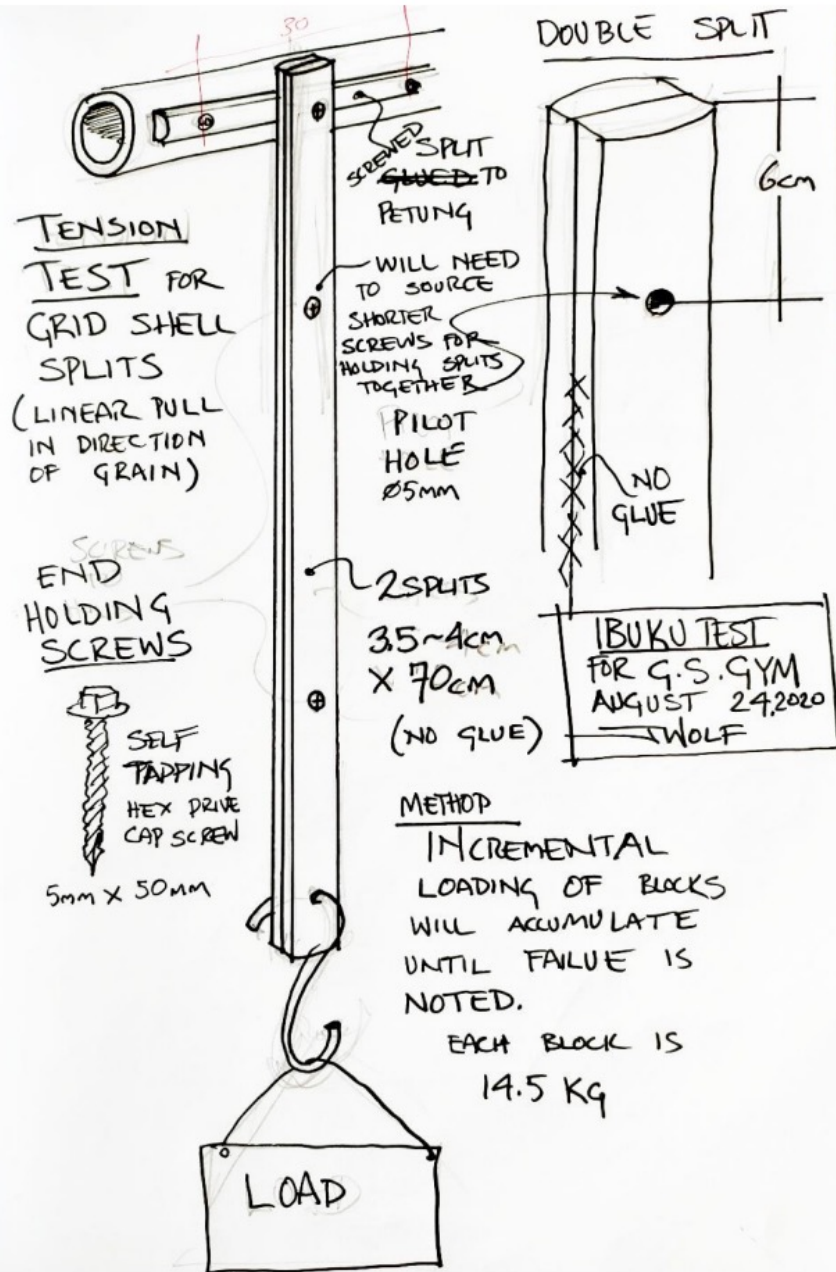 30
DOUBLE SPLIT
SCREWED SPLIT
GLUED TO
PETUNG
6cm
TENSION
TEST FOR
GRID SHELL
SPLITS
(LINEAR PULL
IN DIRECTION
OF GRAIN)
WILL NEED
TO SOURCE
SHORTER
SCREWS FOR
HOLDING SPLITS
TOGETHER
PILOT
HOLE
Ø5mm
NO
GLUE
SCREWS
END
HOLDING
SCREWS
SELF
TAPPING
HEX DRIVE
CAP SCREW
5mm X 50mm
2 SPLITS
3.5~4cm
X 70cm
(NO GLUE)
IBUKU TEST
FOR G.S. GYM
AUGUST 24, 2020
WOLF
METHOD
INCREMENTAL
LOADING OF BLOCKS
WILL ACCUMULATE
UNTIL FAILUE IS
NOTED.
EACH BLOCK IS
14.5 KG
LOAD